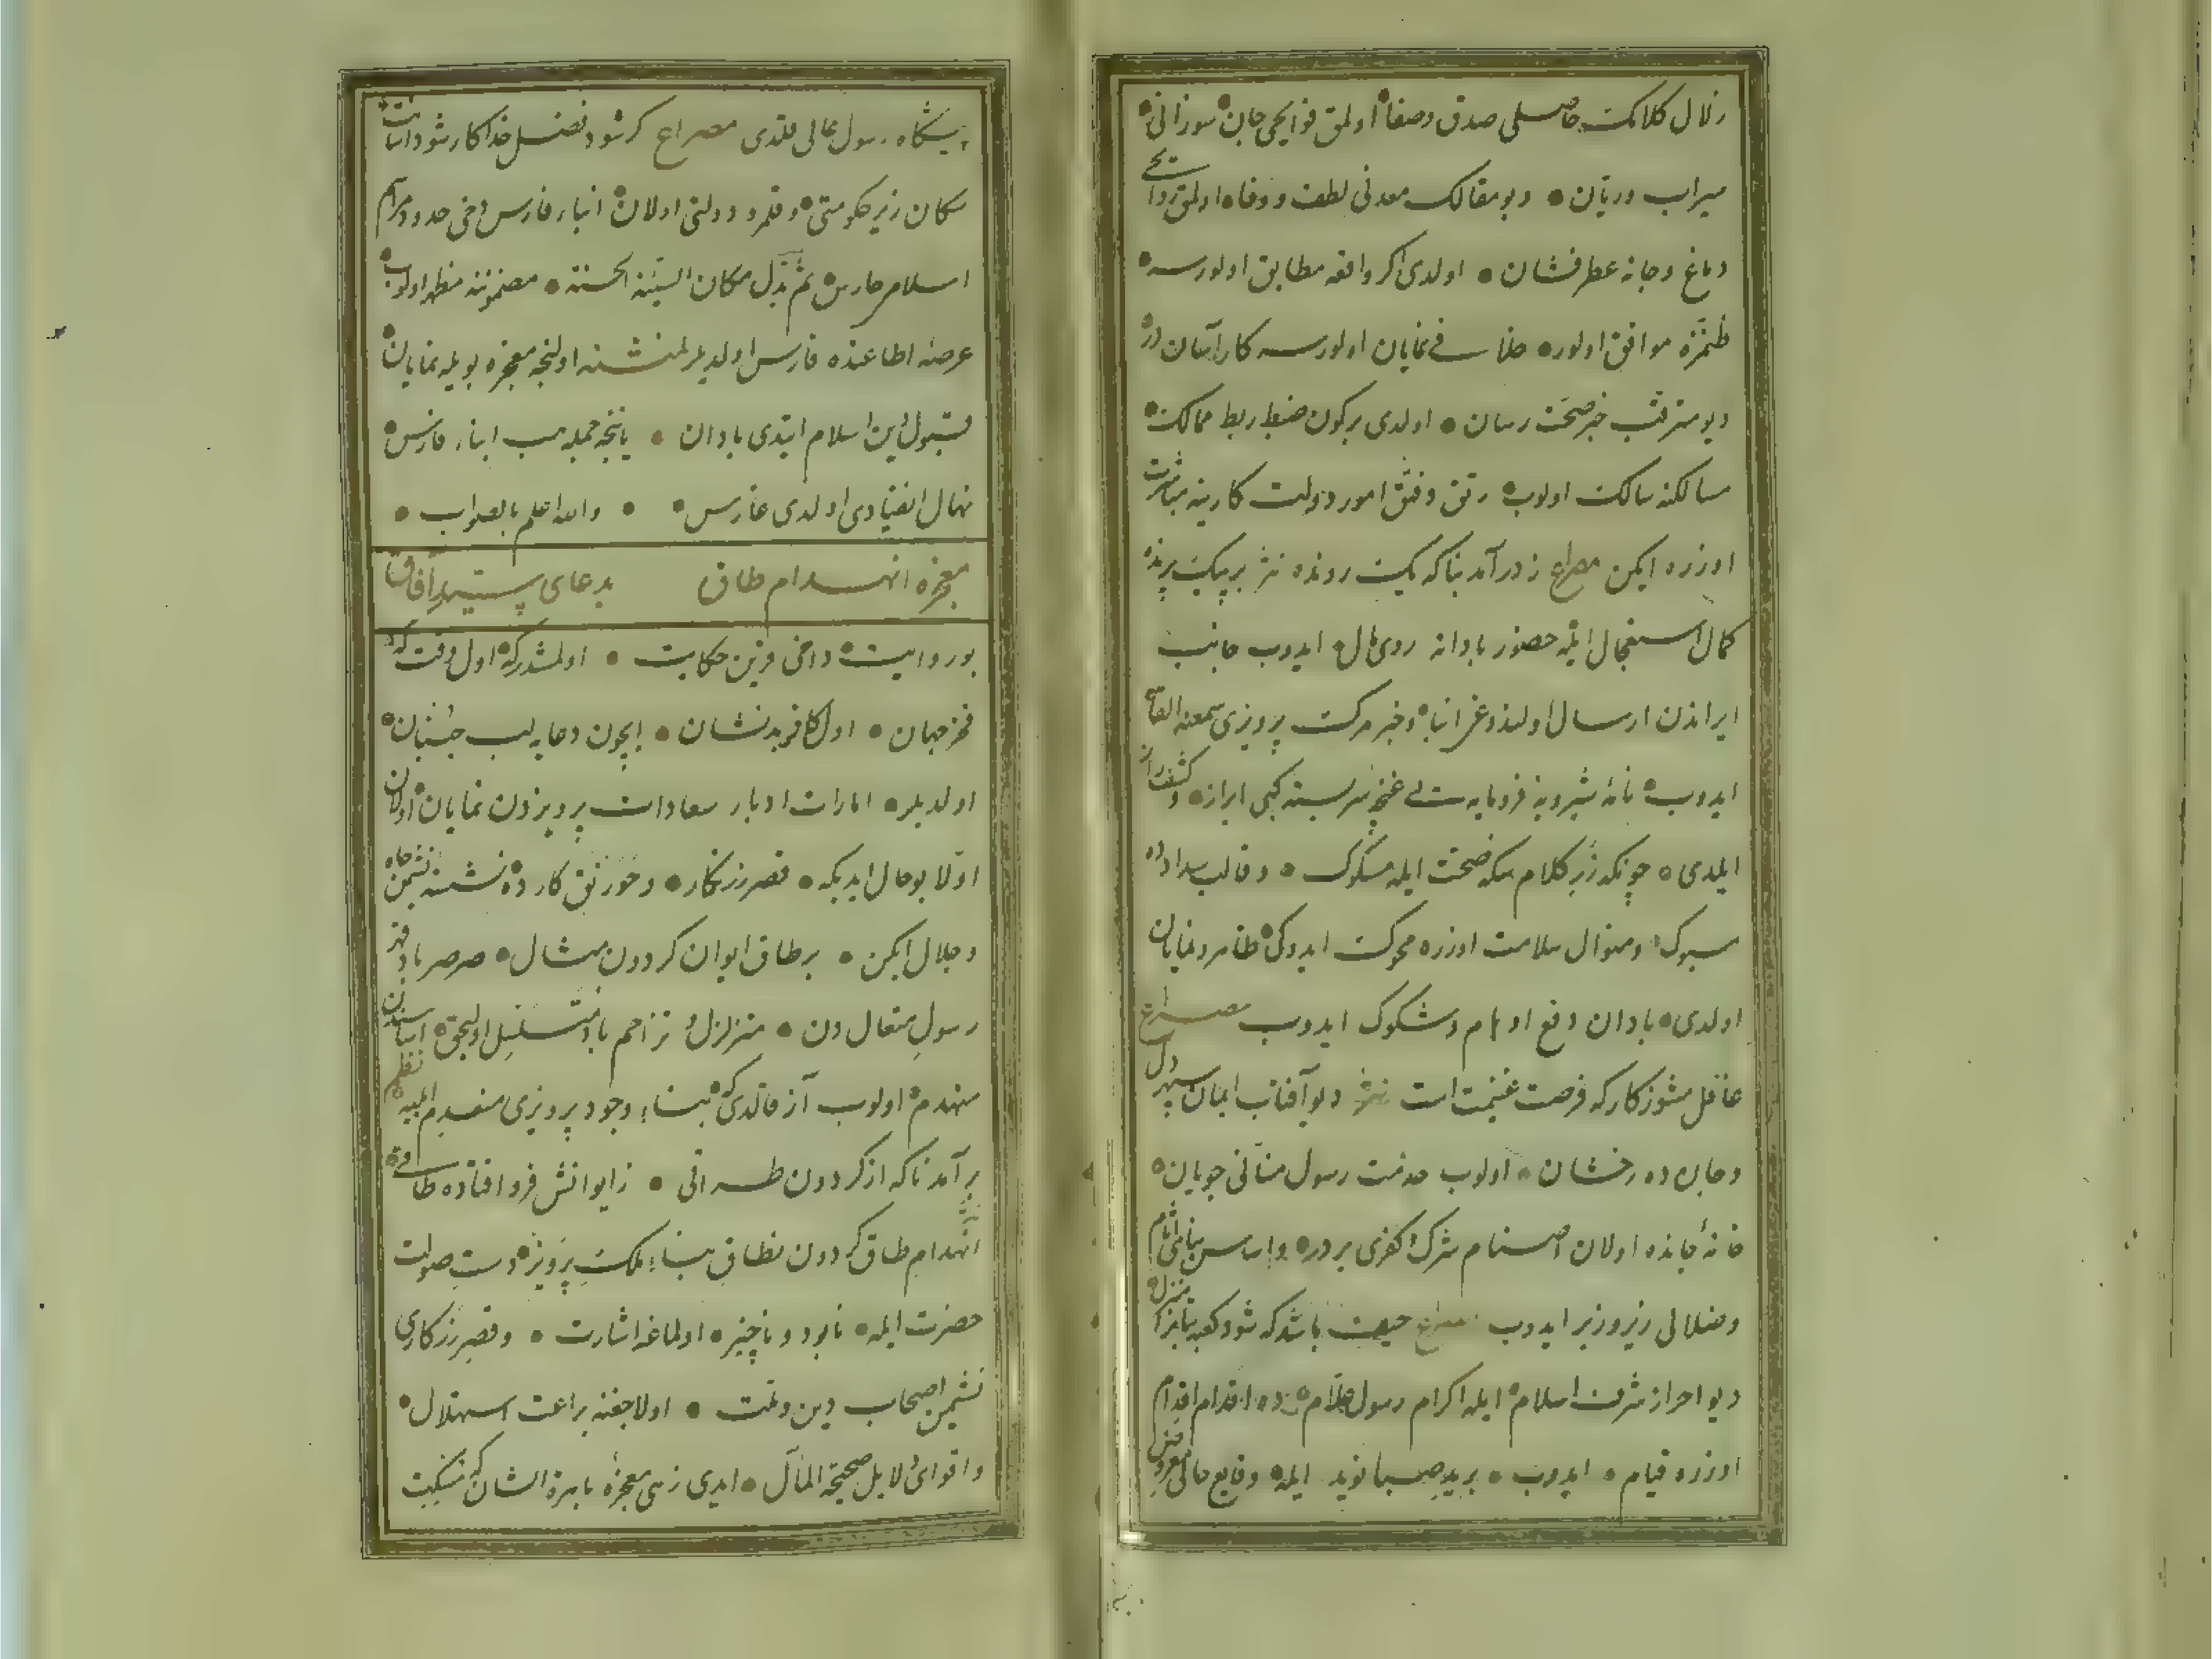 زلال كلامك حاصلى صدق وصفا اولمق فوايحى جان سوزانى
سيراب وريان وبو مقالك معدنى لطف ووفا اولمق روايح
دماغ وجانه عطرفشان اولدى اكر واقعه مطابق اولورسه
ظنمزه موافق اولور خلافى نمايان اولورسه كار آسان در
ديو مترقب خبر صحت رسان اولدى بر كون ضبط ربط ممالك
مسالكنه سالك اولوب رتق وفتق امور دولت كارينه مباشرت
اوزره ايكن مصراع ز در آمد بناكه يك رونده نثر بر پيك پرنده
كمال استعجال ايله حضور بادانه روى مال ايدوب جانب
ايراندن ارسال اولندوغن انبا وخبر مرك پرويزى سمعنه القا
ايدوب نامهٔ شيرويه فرومايه سى غنچه سربسته كبى ابراز وكشف راز
ايلدى چونكه زر كلام سكه صحت ايله مسكوك وقالب سداد ده
مسبوك ومنوال سلامت اوزره محوك ايدوكى ظاهر ونمايان
اولدى بادان دفع اوهام وشكوك ايدوب مصراع
غافل مشو ز كار كه فرصت غنيمت است نثر ديو آفتاب ايمان سپهر دل
وجان ده رخشان اولوب خدمت رسول منانى جويان
خانهٔ جانده اولان اصنام شرك وكفرى بردر واساس بناى آثام
وضلالى زير وزبر ايدوب مصراع حيف باشد كه شود كعبه بتانرا منزل
ديو احراز شرف اسلام ايله اكرام رسول علام ده اقدام اقدام
اوزره قيام ايدوب بريد صبا نويد ايله وقايع حالى معروض
پيشگاه رسول عالى قلندى مصراع كر شود فضل خدا كار شود آسانت
سكان زير حكومتى وقلمرو دولتى اولان ابناء فارس دخى حدود مرام
اسلام حارس ثم بدل مكان السيئة الحسنة مضموننه مظهر اولوب
عرصه اطاعتده فارس اولديلر لمنشئه اولنجه معجزه بويله نمايان
قبول دين اسلام ايتدى بادان ياننجه جمله هپ ابناء فارس
نهال انقيادى اولدى غارس والله اعلم بالصواب
معجزه انهدام طاق بدعاى پيغمبر آفاق
بو روايت داخى قرين حكايت اولمشدركه اول وقت كه
فخر جهان اول كافر بدنشان ايچون دعايه لب جنبان
اولديلر امارات ادبار سعادات پرويزدن نمايان اولان
اولا بو حال ايديكه قصر زرنكار وخورنق كارده نشسته نشيمن جاه
وجلال ايكن بر طاق ايوان كردون مثال صرصر باد قهر
رسول متعال دن متزلزل وتزاحم باد متسلسل اوليجق اساسندن
منهدم اولوب آز قالدى كه بناء وجود پرويزى منعدم ايليه نظم
برآمد ناكه از كردون طراقى ز ايوانش فرو افتاده طاقى
انهدام طاق كردون نطاق بناء ملك پرويز دست صولت
حضرت ايله نابود وناچيز اولماغه اشارت وقصر زركارى
نشيمن اصحاب دين وملت اولاجغنه براعت استهلال
واقواى دلايل صحيحة المآل ايدى زهى معجزهٔ باهرة الشان كه